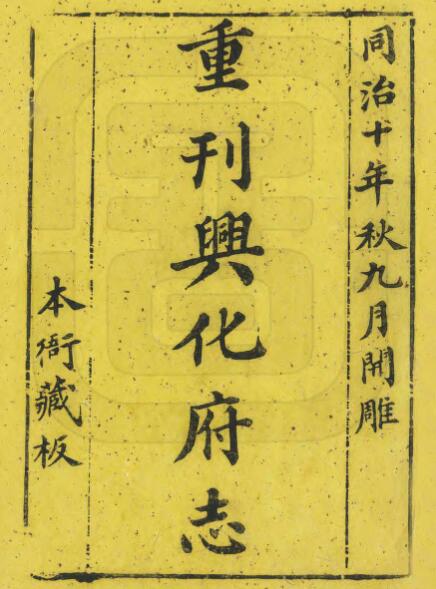 同治十年秋九月開雕
重刊興化府志
本衙藏板